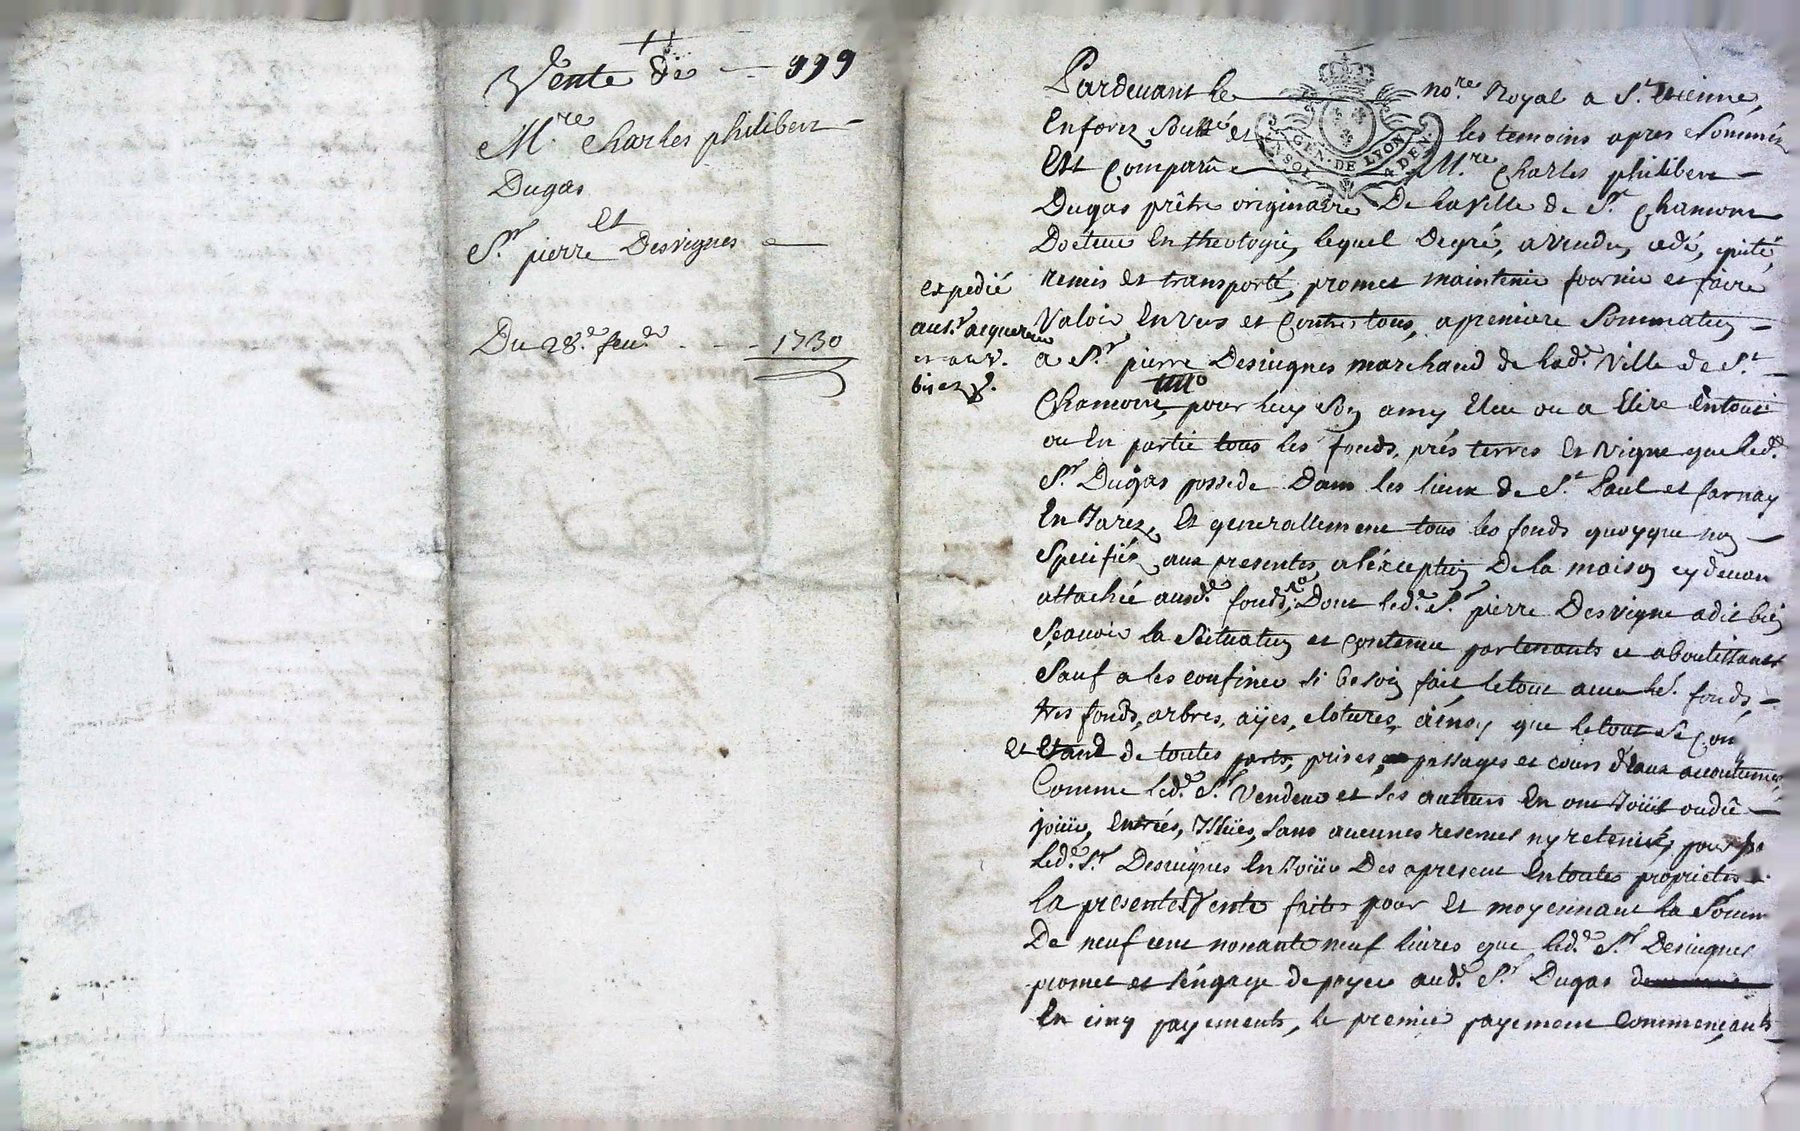 Vente de — 999
M.re Charles philibert
Dugas
Et
S.r pierre Desvignes
Du 28.e feu.r - - 1730
expedié
au s.r acquereur
GEN. DE LYON
Pardevant le no.re Royal a S.t Etienne,
En forez Sous.né et les temoins apres Nommés
Est Comparu M.re Charles philibert
Dugas prêtre originaire De la Ville de S.t Chamont
Docteur En theologie, lequel De gré, a vendu, cedé, quité,
remis et transporté, promet maintenir fournir et faire
Valoir Envers et Contre tous, a premiere Sommation
a S.r pierre Desvignes marchand de lad.e Ville de S.t
Chamont, pour luy Son amy Eleu ou a Elire En tout
ou En partie tous les fonds, prés terres Et Vigne que led.
S.r Dugas possede Dans les lieux de S.t Paul et farnay
En Jarez, Et generallement tous les fonds quoyque non
Specifiés aux presentes, a l'éxception De la maison cy devant
attachée ausd. fonds, Dont led. S.r pierre Desvigne a dit bien
Sçauoir la Scituation et Contenue partenants et aboutissants
Sauf a les confiner si besoin fait le tout auec les. fonds,
tres fonds, arbres, ayes, clotures, ainsy que le tout se Con
et Etand de toutes parts, prises, passages et cours d'eaux accoutumés,
Comme led. S.r Vendeur et ses autheurs En ont Joüit ou dû
joüir, Entrées, Issües, Sans aucunes reserues ny retenües, pour
led. S.r Desuignes En Joüir Des apresent En toutes proprietés
la presente Vente faite pour Et moyennant la Somme
De neuf cent nonante neuf liures que led. S.r Desuignes
promet et s'éngage de payer aud. S.r Dugas
En cinq payements, le premier payement Commençants